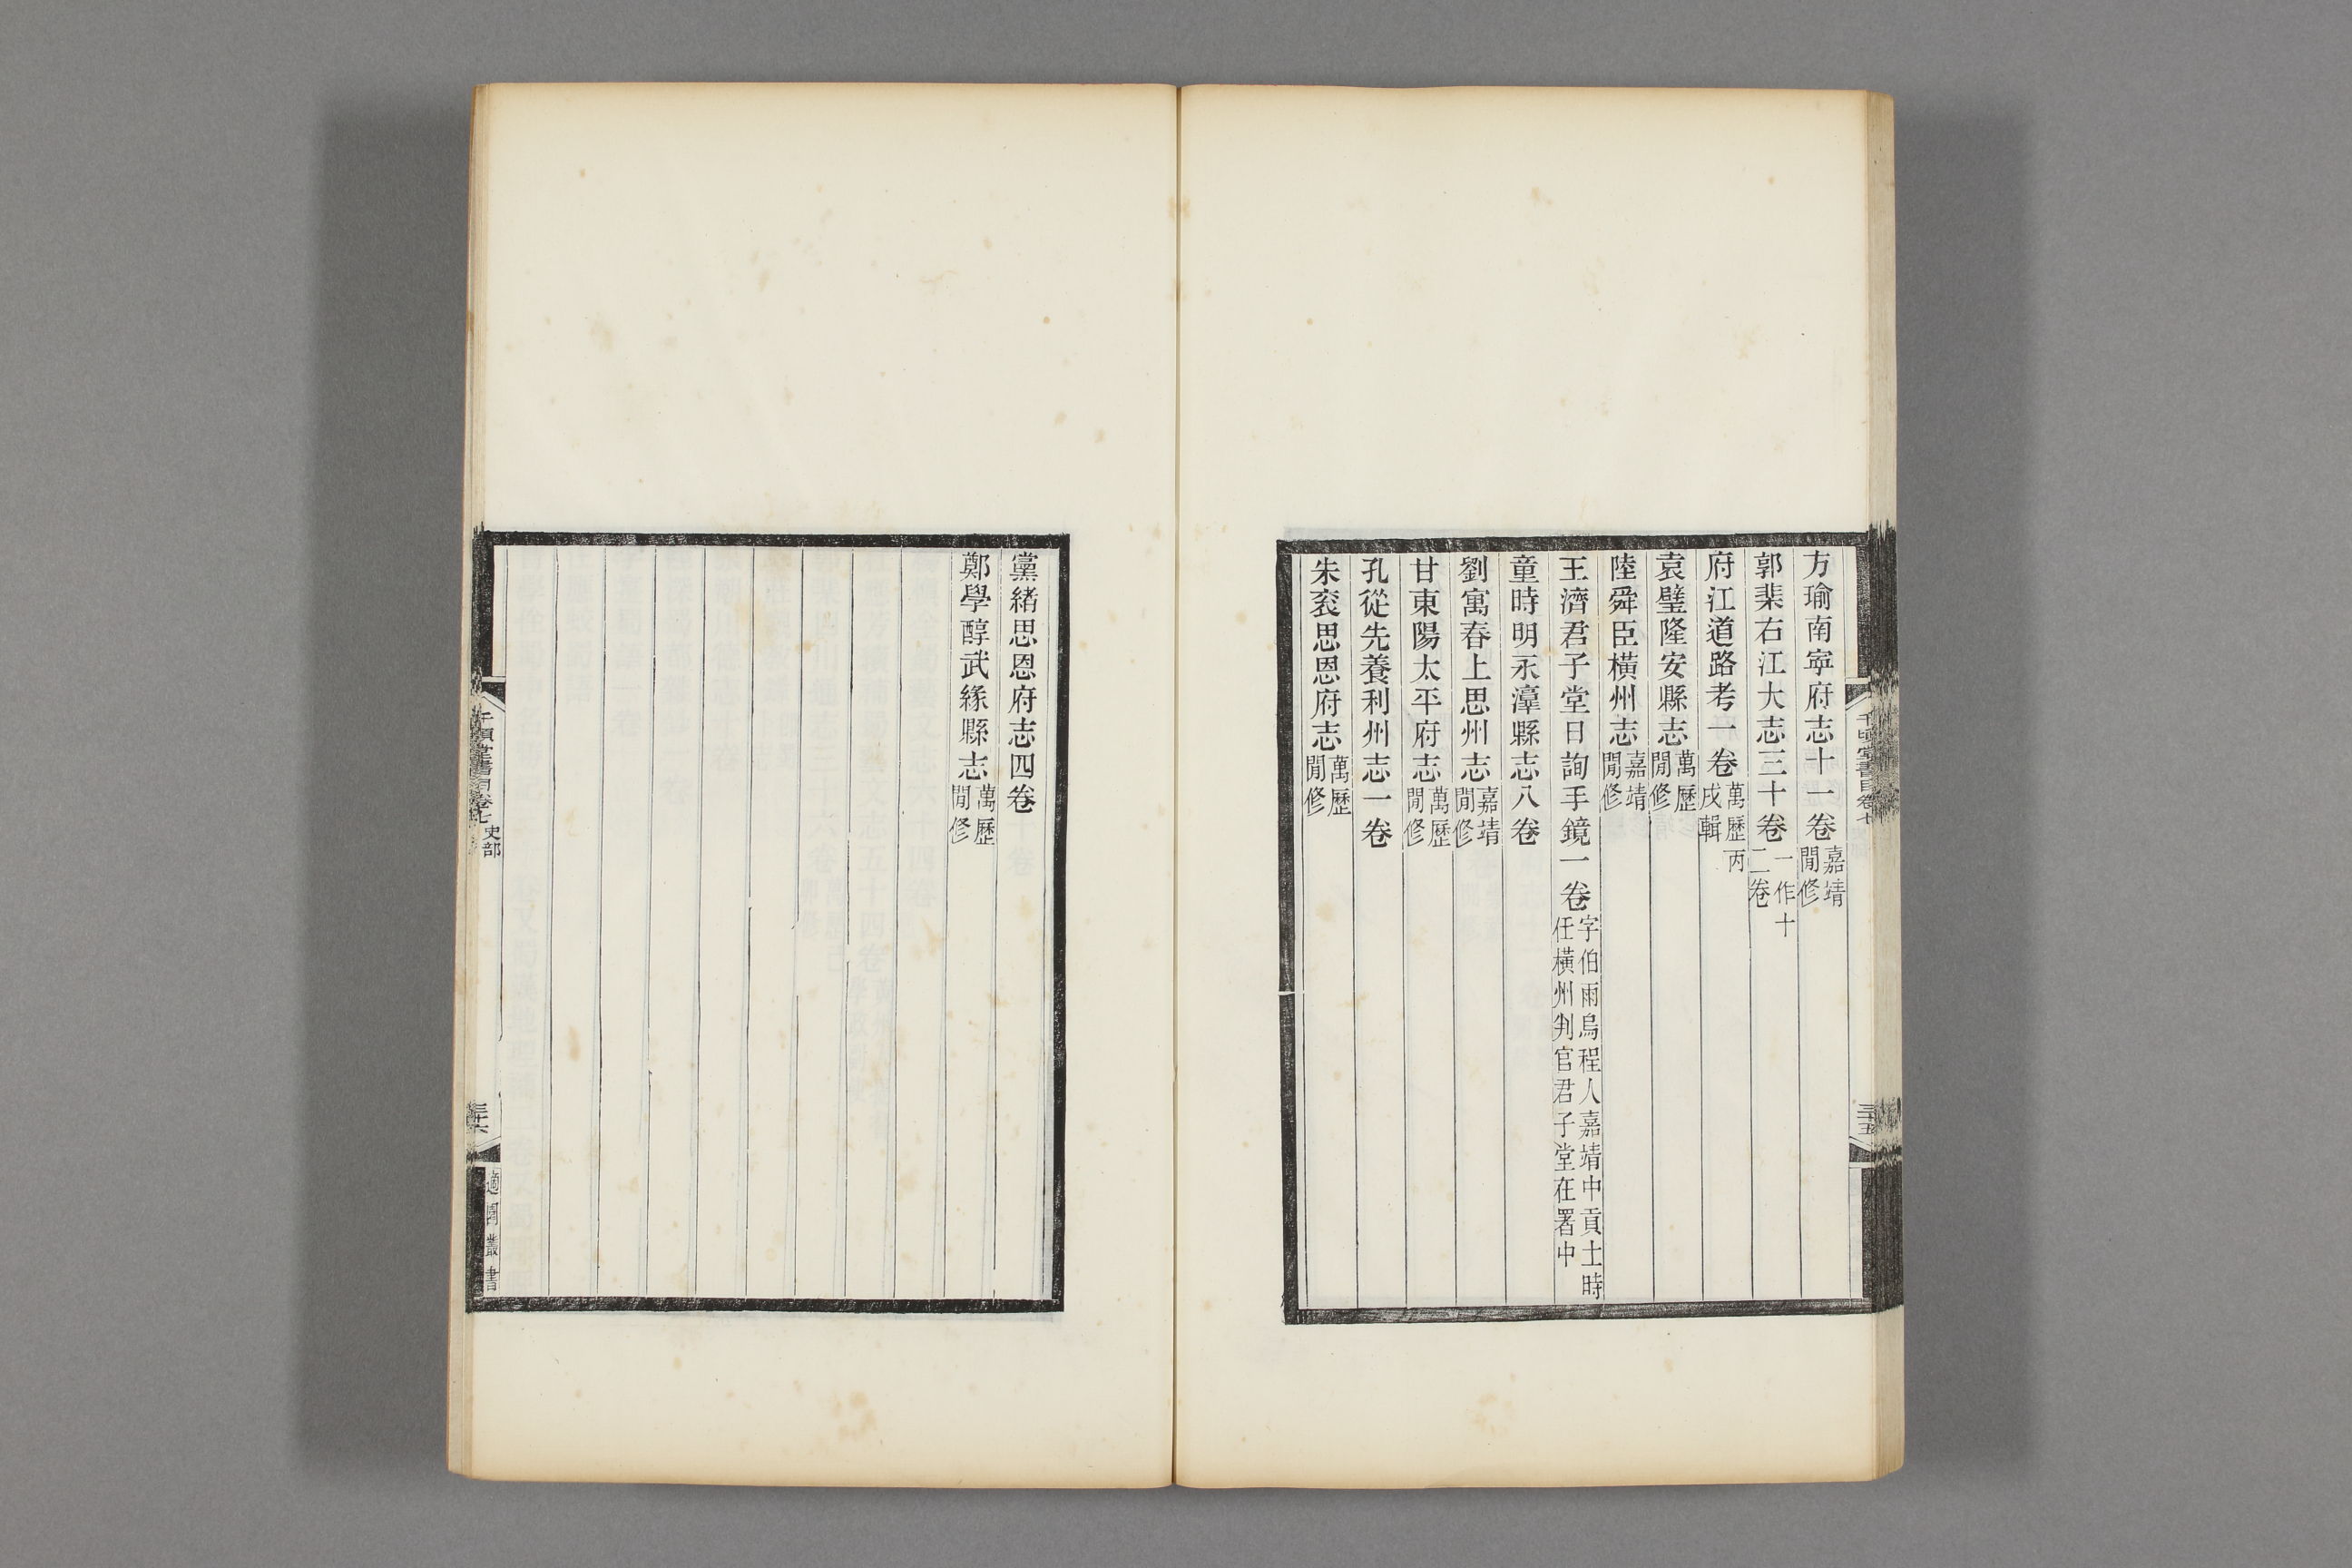 方瑜南寧府志十一卷嘉靖閒修
郭棐右江大志三十卷一作十二卷
府江道路考一卷萬歷丙戌輯
袁璧隆安縣志萬歷閒修
陸舜臣橫州志嘉靖閒修
王濟君子堂日詢手鏡一卷字伯雨烏程人嘉靖中貢士時任橫州判官君子堂在署中
童時明永淳縣志八卷
劉寓春上思州志嘉靖閒修
甘東陽太平府志萬歷閒修
孔從先養利州志一卷
朱衮思恩府志萬歷閒修
千頃堂書目卷七
三十五
黨緒思恩府志四卷
鄭學醇武緣縣志萬歷閒修
千頃堂書目卷七史部
三十六
適園叢書